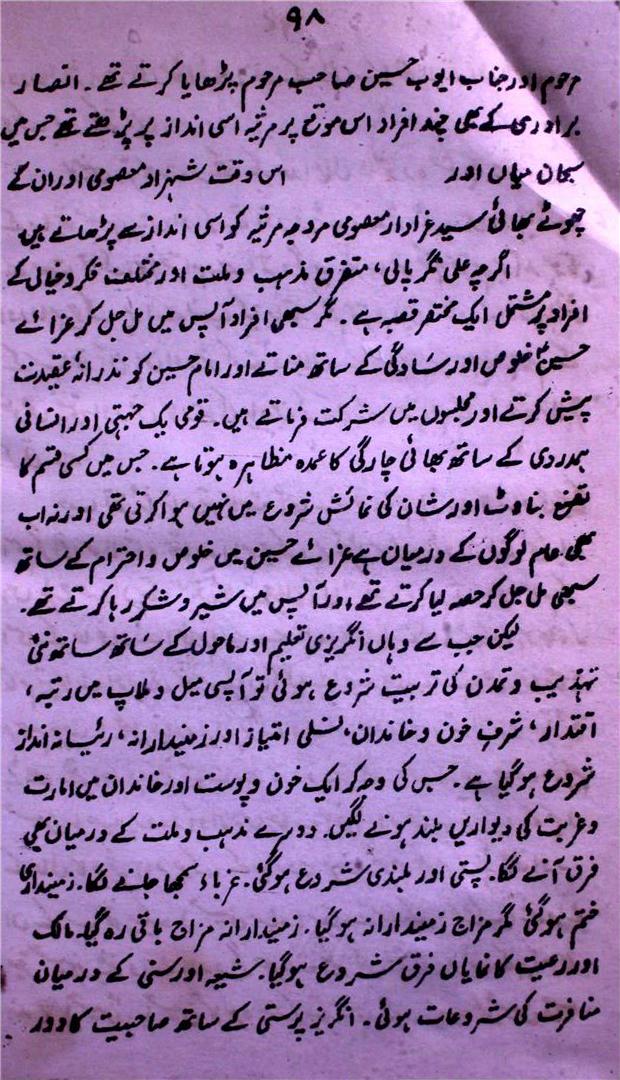 ۹۸
مرحوم اور جناب ایوب حسین صاحب مرحوم پڑھایا کرتے تھے۔ انصار
برادری کے بھی چند افراد اس موقع پر مرثیہ اسی انداز پر پڑھتے تھے جس میں
سبحان میاں اور اس وقت شہزاد معصومی اور ان کے
چھوٹے بھائی سید عزادار معصومی مروجہ مرثیہ کو اسی انداز سے پڑھاتے ہیں
اگرچہ علی نگر پالی، متفرق مذہب و ملت اور مختلف فکر و خیال کے
افراد پر مشتمل ایک مختصر قصبہ ہے۔ مگر سبھی افراد آپس میں مل جل کر عزائے
حسینؑ خلوص اور سادگی کے ساتھ مناتے اور امام حسین کو نذرانۂ عقیدت
پیش کرتے اور مجلسوں میں شرکت فرماتے ہیں۔ قومی یک جہتی اور انسانی
ہمدردی کے ساتھ بھائی چارگی کا عمدہ مظاہرہ ہوتا ہے۔ جس میں کسی قسم کا
تصنع بناوٹ اور شان کی نمائش شروع میں نہیں ہوا کرتی تھی اور نہ اب
بھی عام لوگوں کے درمیان ہے عزائے حسین میں خلوص و احترام کے ساتھ
سبھی مل جل کر حصہ لیا کرتے تھے اور آپس میں شیر و شکر رہا کرتے تھے۔
لیکن جب سے وہاں انگریزی تعلیم اور ماحول کے ساتھ ساتھ نئی
تہذیب و تمدن کی تربیت شروع ہوئی تو آپسی میل و ملاپ میں رتبہ،
اقتدار، شرفِ خون و خاندان، نسلی امتیاز اور زمیندارانہ، رئیسانہ انداز
شروع ہو گیا ہے۔ جس کی وجہ کر ایک خون و پوست اور خاندان میں امارت
و غربت کی دیواریں بلند ہونے لگیں۔ دوسرے مذہب و ملت کے درمیان بھی
فرق آنے لگا۔ پستی اور بلندی شروع ہو گئی۔ غرباء سمجھا جانے لگا۔ زمینداری
ختم ہو گئی مگر مزاج زمیندارانہ ہو گیا۔ زمیندارانہ مزاج باقی رہ گیا۔ مالک
اور رعیت کا نمایاں فرق شروع ہو گیا۔ شیعہ اور سنی کے درمیان
منافرت کی شروعات ہوئی۔ انگریز پرستی کے ساتھ صاحبیت کا دور